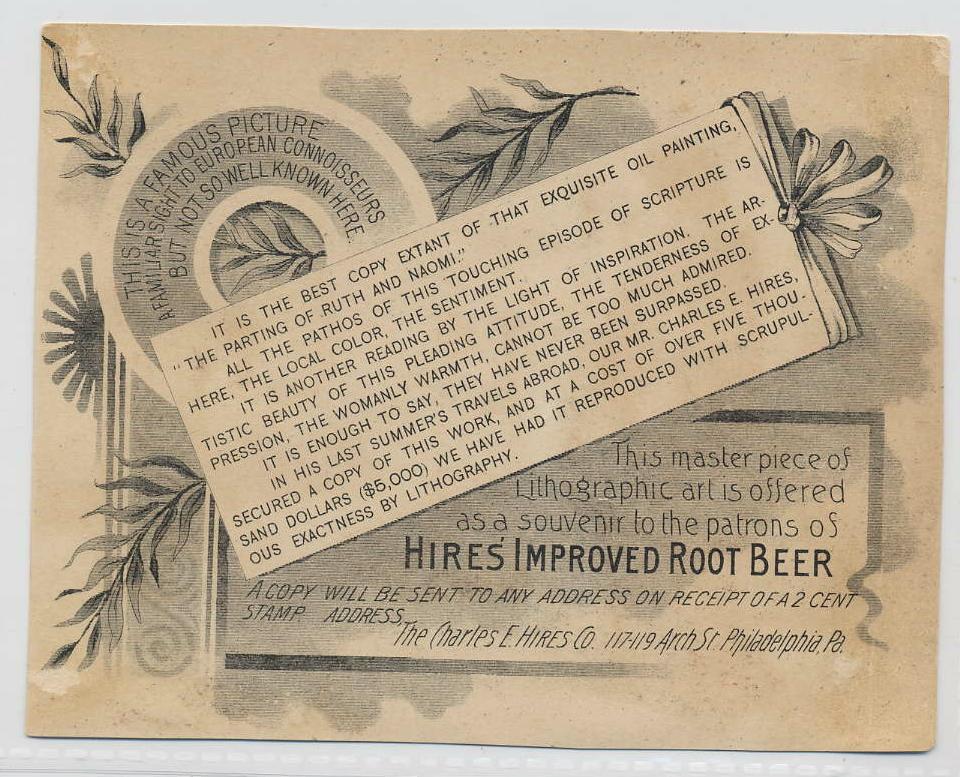 THIS IS A FAMOUS PICTURE
A FAMILIAR SIGHT TO EUROPEAN CONNOISSEURS
BUT NOT SO WELL KNOWN HERE.
IT IS THE BEST COPY EXTANT OF THAT EXQUISITE OIL PAINTING,
"THE PARTING OF RUTH AND NAOMI."
ALL THE PATHOS OF THIS TOUCHING EPISODE OF SCRIPTURE IS
HERE, THE LOCAL COLOR, THE SENTIMENT.
IT IS ANOTHER READING BY THE LIGHT OF INSPIRATION. THE AR-
TISTIC BEAUTY OF THIS PLEADING ATTITUDE, THE TENDERNESS OF EX-
PRESSION, THE WOMANLY WARMTH, CANNOT BE TOO MUCH ADMIRED.
IT IS ENOUGH TO SAY, THEY HAVE NEVER BEEN SURPASSED.
IN HIS LAST SUMMER'S TRAVELS ABROAD, OUR MR. CHARLES E. HIRES,
SECURED A COPY OF THIS WORK, AND AT A COST OF OVER FIVE THOU-
SAND DOLLARS ($5,000) WE HAVE HAD IT REPRODUCED WITH SCRUPUL-
OUS EXACTNESS BY LITHOGRAPHY.
This master piece of
Lithographic art is offered
as a souvenir to the patrons of
HIRES' IMPROVED ROOT BEER
A COPY WILL BE SENT TO ANY ADDRESS ON RECEIPT OF A 2 CENT
STAMP. ADDRESS,
The Charles E. HIRES Co. 117-119 Arch St. Philadelphia, Pa.